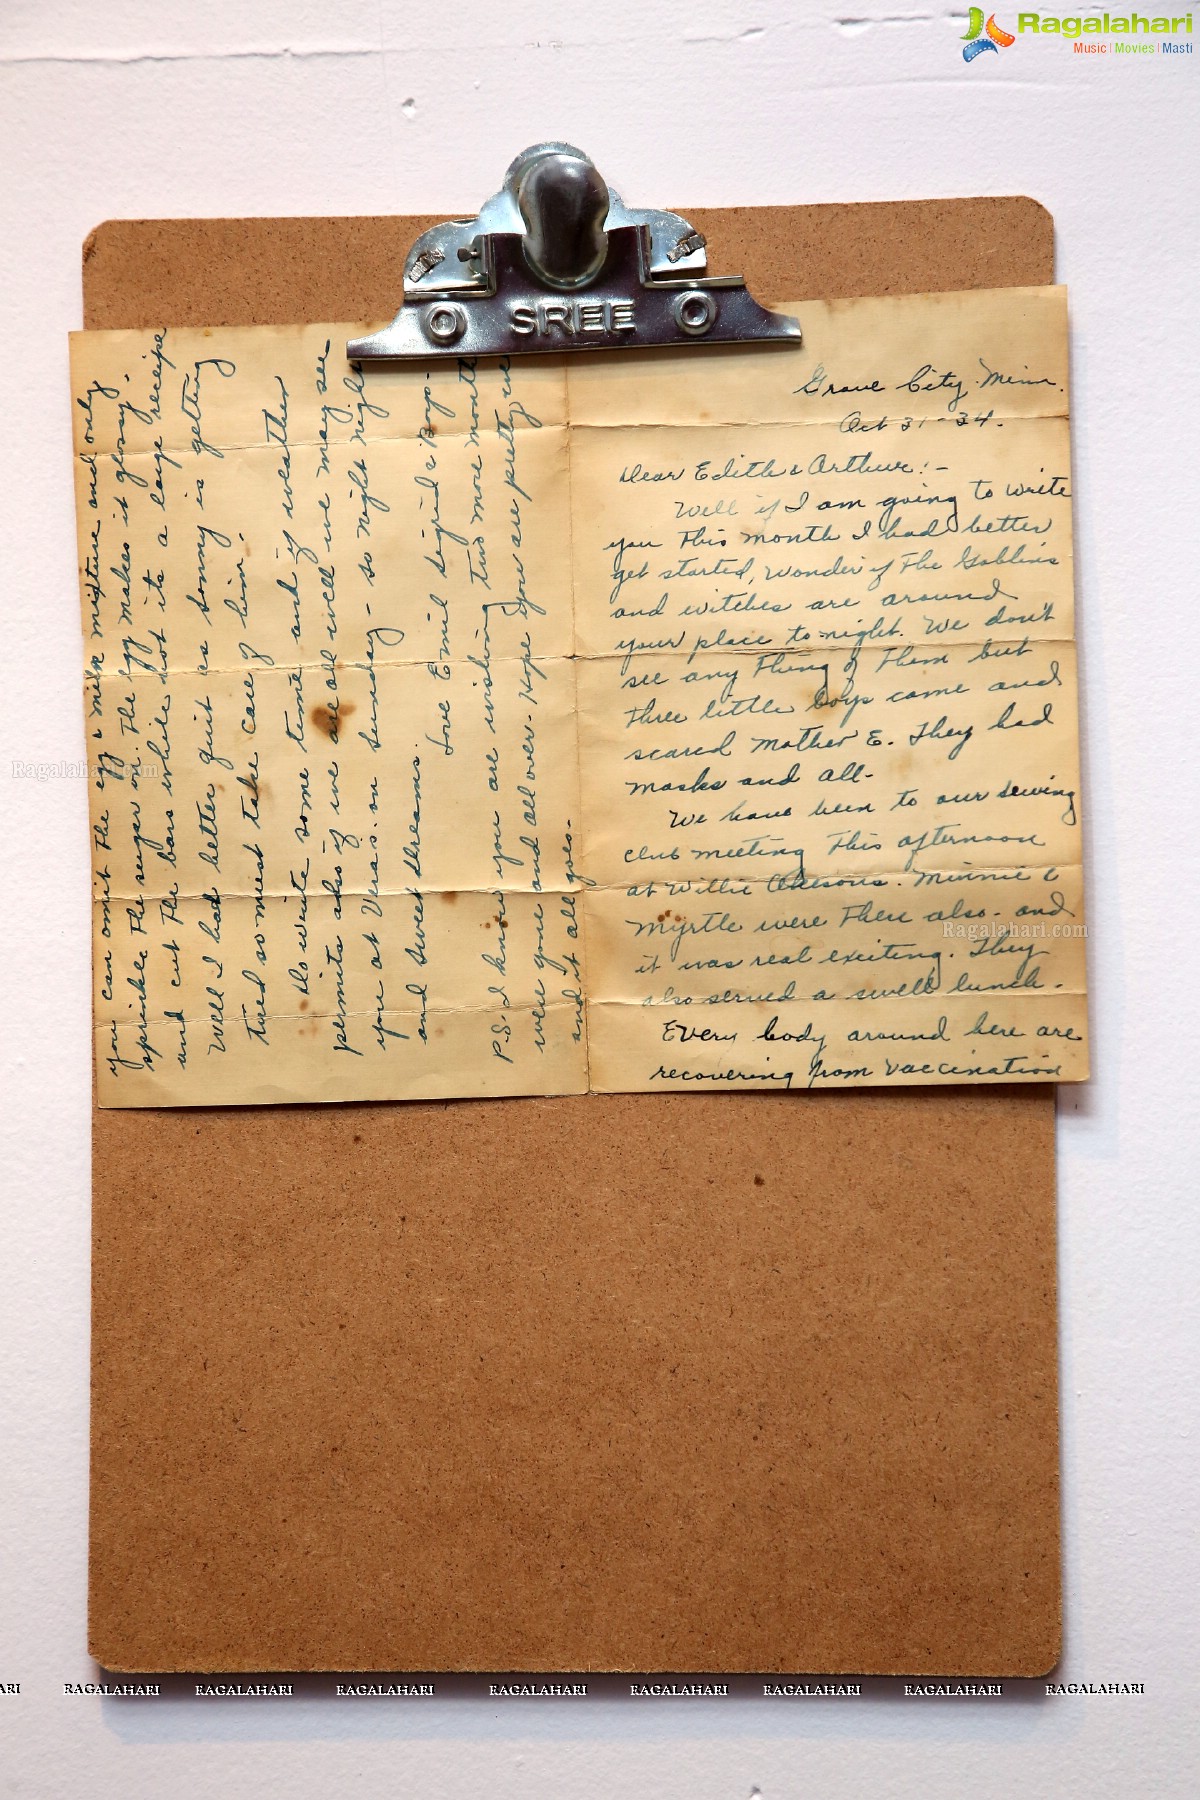 Ragalahari
Music | Movies | Masti
SREE
Grove City. Minn.
Oct 31-34.
Dear Edith & Arthur:-
Well if I am going to write
you this month I had better
get started, wonder if the Goblins
and witches are around
your place to-night. We don't
see any thing of them but
three little boys came and
scared Mother E. They had
masks and all-
We have been to our sewing
club meeting this afternoon
at Willie Akesons. Minnie &
Myrtle were there also- and
it was real exciting. They
also served a swell lunch.
Every body around here are
recovering from vaccination
you can omit the egg & milk mixture and only
sprinkle the sugar on. The egg makes it glossy.
and cut the bars while hot its a large receipe
Well I had better quit as sonny is getting
tired so must take care of him.
Do write some time and if weather
permits also if we are all well we may see
you at Veras. on Sunday - so night night
and sweet dreams.
Love Emil Sigrid & Boys.
P.S. I know you are wishing two more months
were gone and all over. Hope you are pretty well
and it all goes-
Ragalahari.com
Ragalahari.com
RAGALAHARI RAGALAHARI RAGALAHARI RAGALAHARI RAGALAHARI RAGALAHARI RAGALAHARI RAGALAHARI